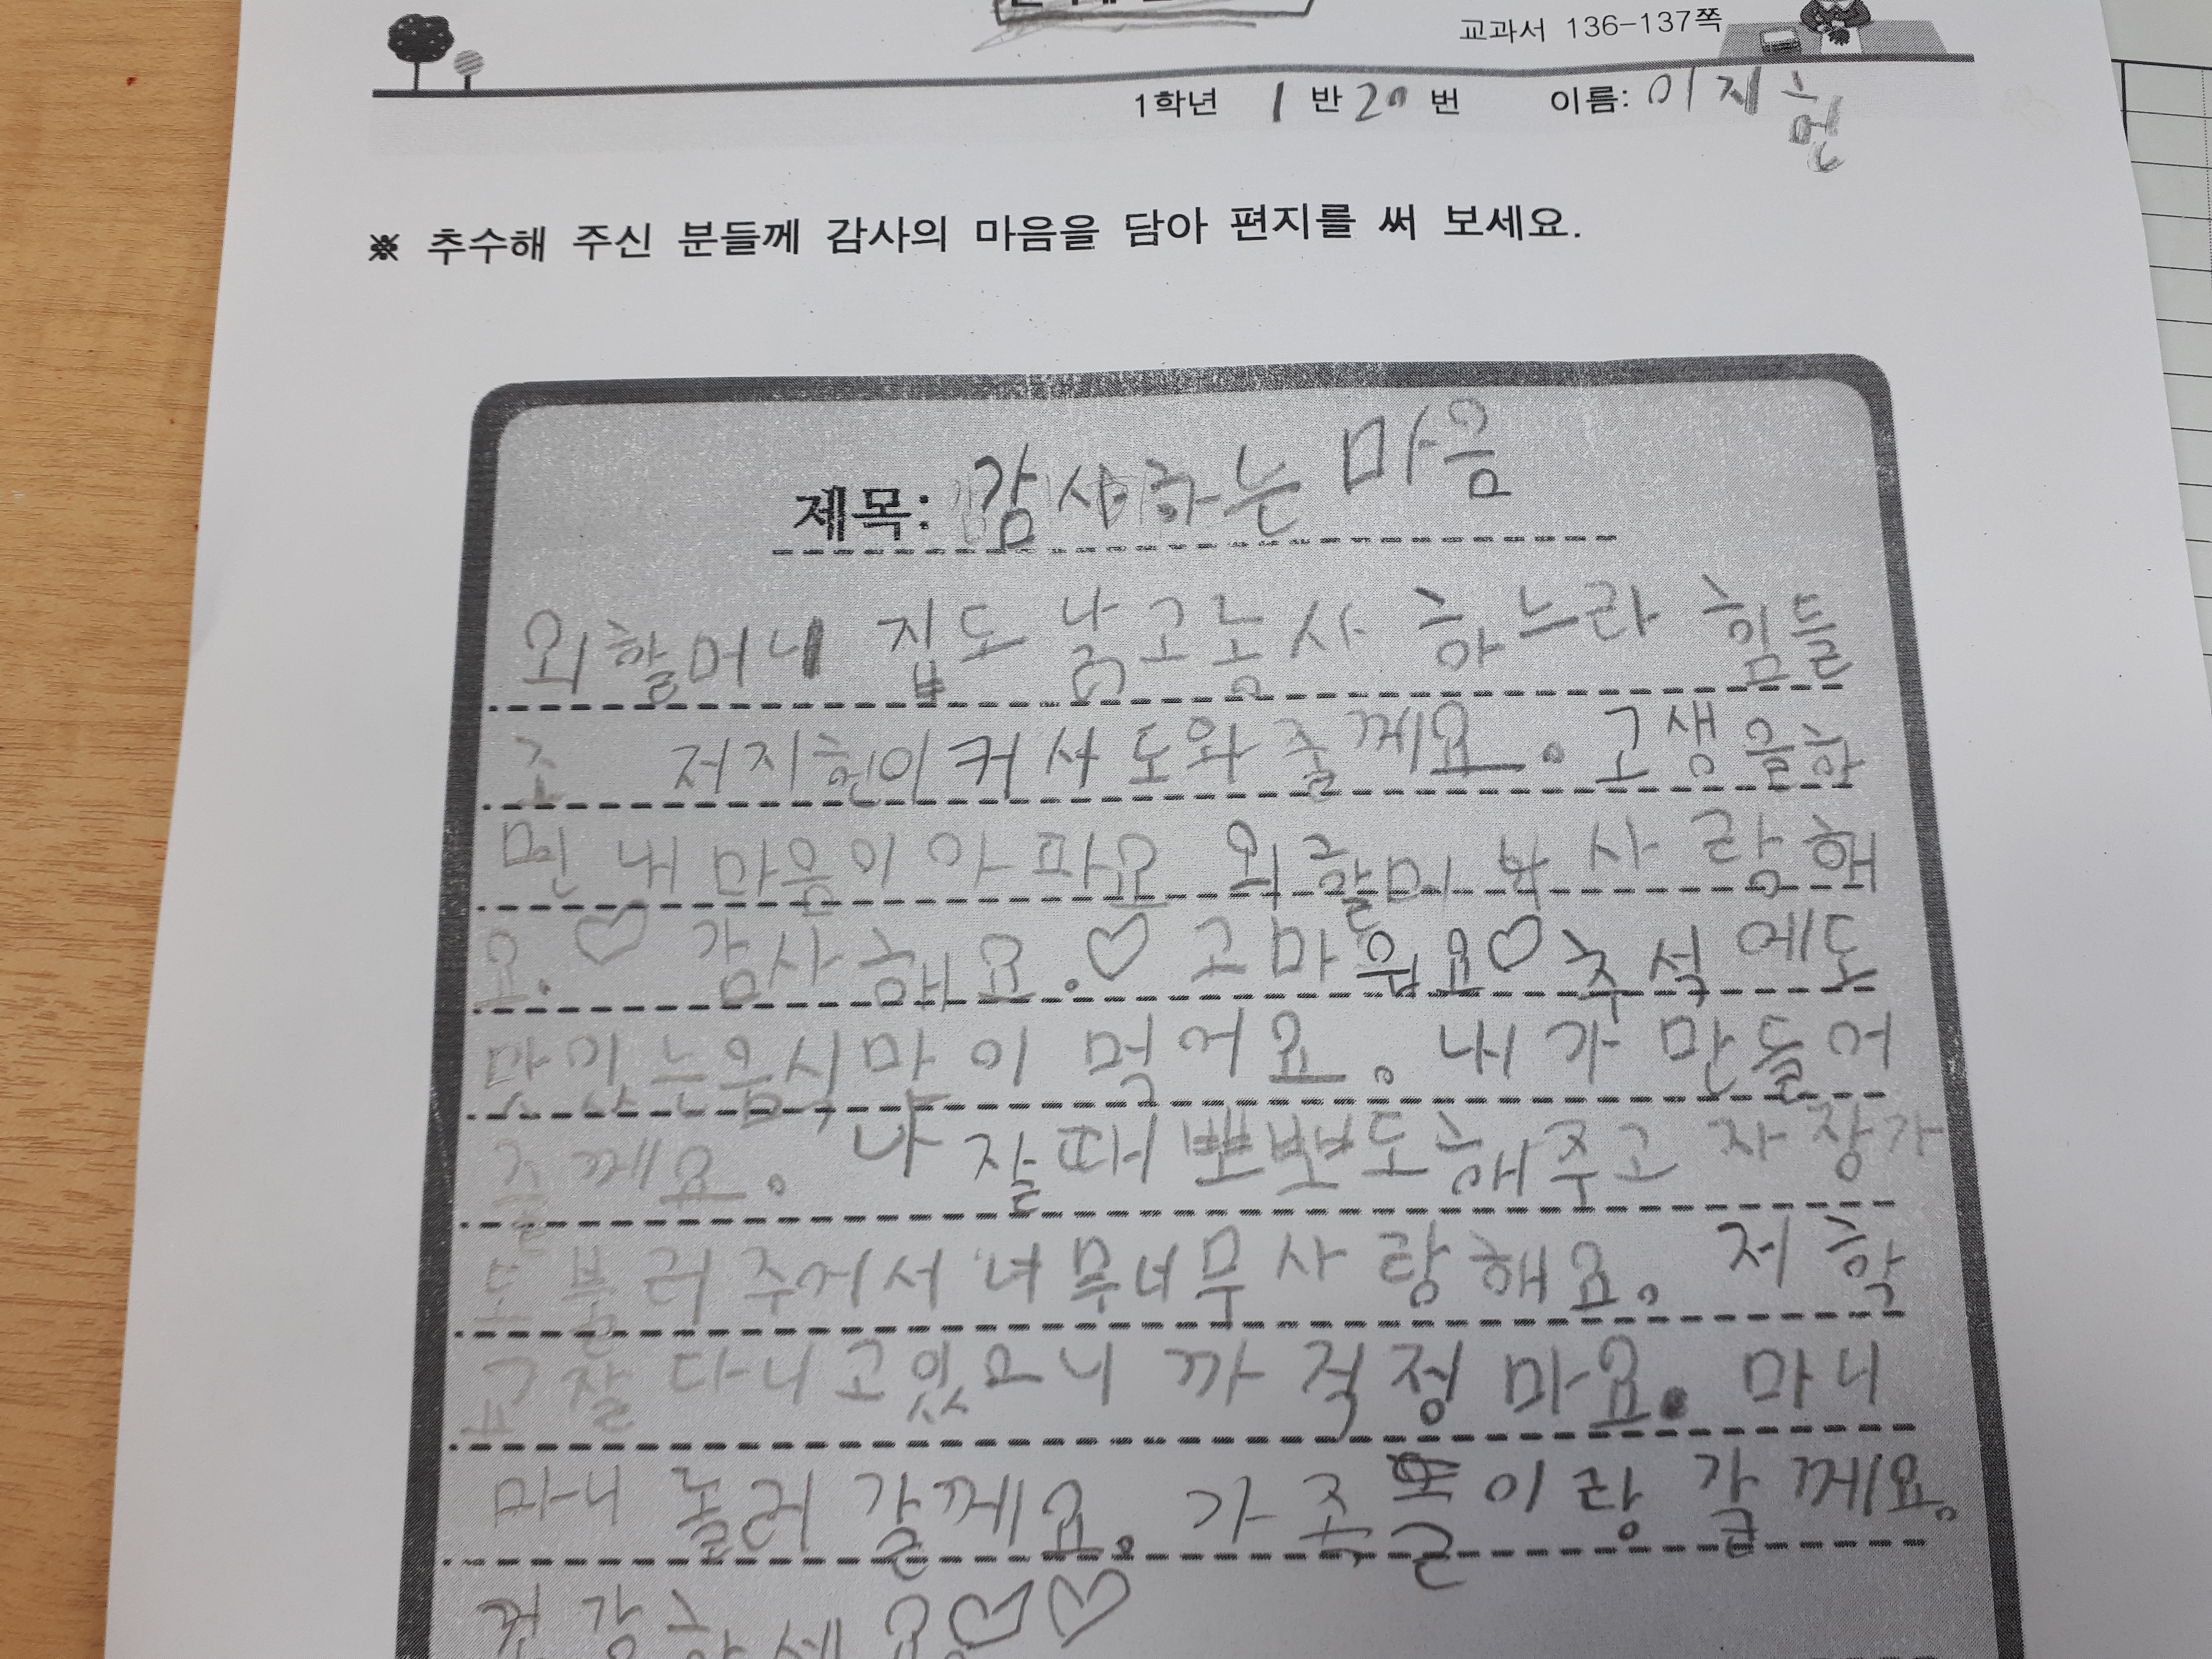 교과서 136-137쪽
1학년 1 반 20 번 이름: 이지헌
※ 추수해 주신 분들께 감사의 마음을 담아 편지를 써 보세요.
제목: 감사하는 마음
외할머니 집도 낡고 농사 하느라 힘들
조 저 지헌이 커서 도와 줄께요. 고생을 하
면 내 마음이 아파요 외할머니 사랑해
요.♡ 감사해요.♡ 고마워요♡ 추석에도
맛있는 음식 마이 먹어요. 내가 만들어
줄께요. 나 잘때 뽀뽀도 해주고 자장가
도 불러 주어서 너무너무 사랑해요. 저 학
교 잘 다니고 있으니까 걱정 마요. 마니
마니 놀러 갈께요. 가족 이랑 갈께요.
건강하세요♡♡